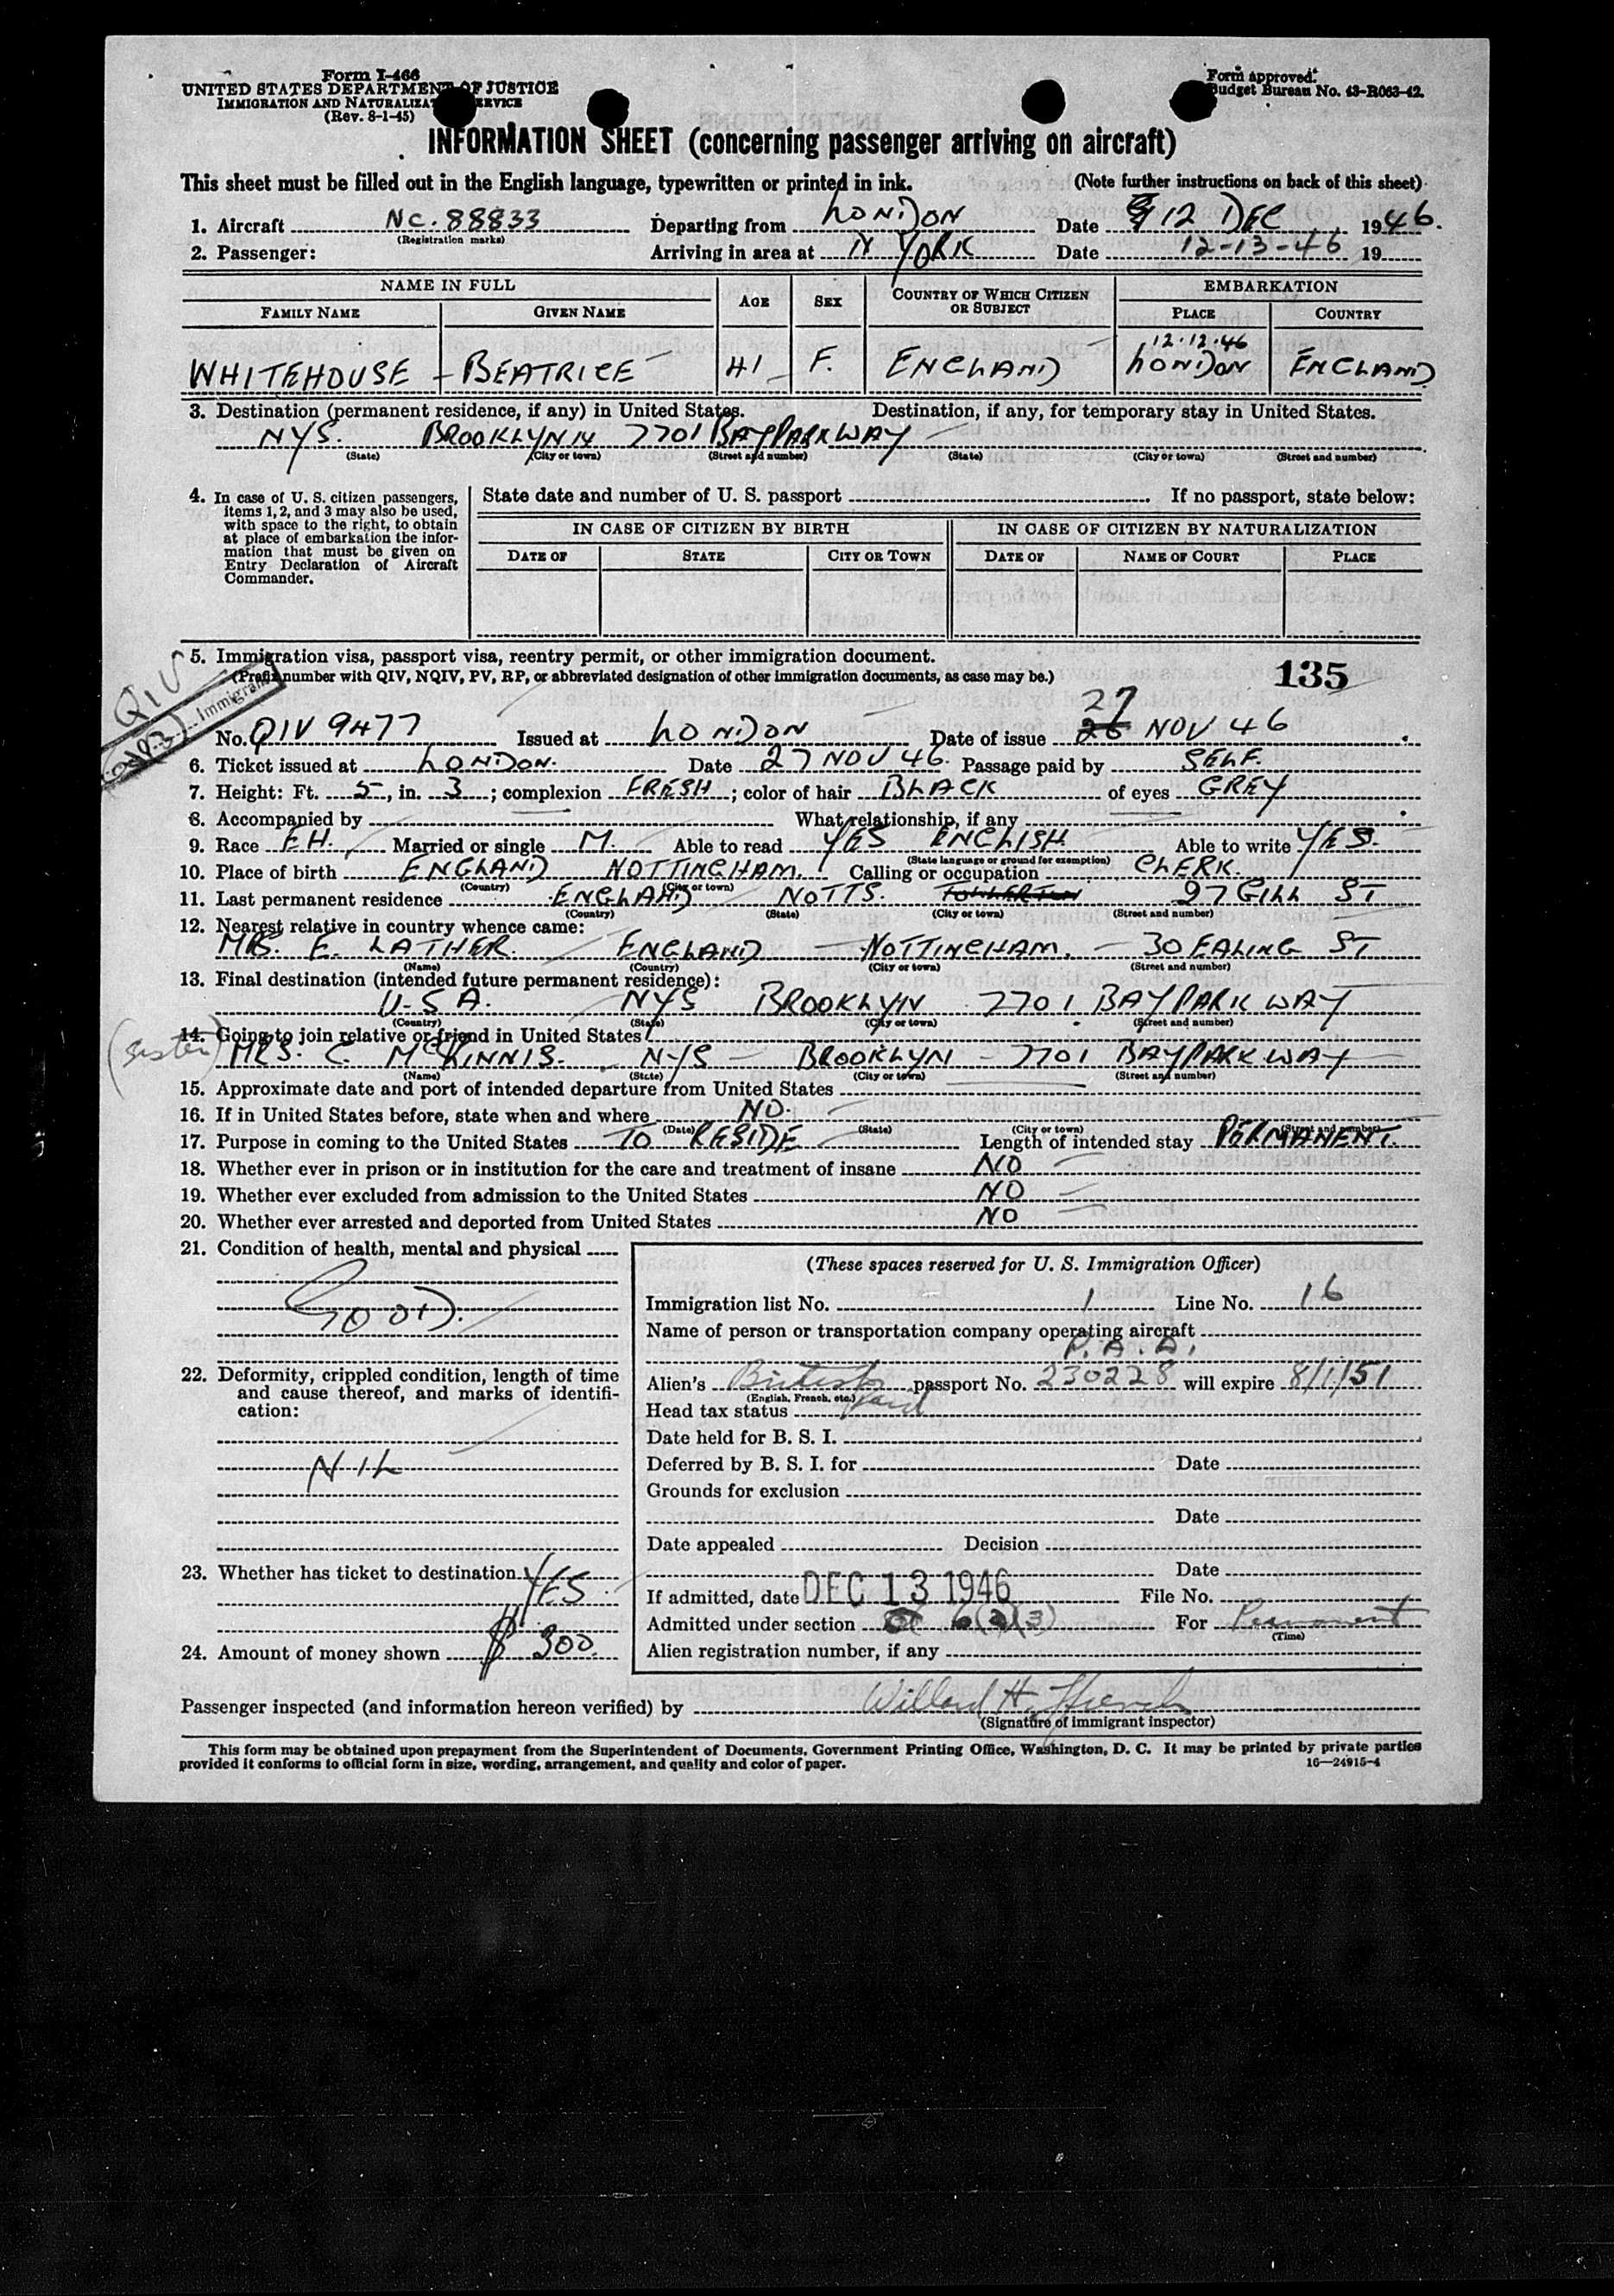 Form I-466
UNITED STATES DEPARTMENT OF JUSTICE
IMMIGRATION AND NATURALIZATION SERVICE
(Rev. 8-1-45)
Form approved.
Budget Bureau No. 43-R063-42.
INFORMATION SHEET (concerning passenger arriving on aircraft)
This sheet must be filled out in the English language, typewritten or printed in ink. (Note further instructions on back of this sheet)
1. Aircraft NC.88833 Departing from LONDON Date 12 DEC 1946.
(Registration marks)
2. Passenger: Arriving in area at N YORK Date 12-13-46 19
NAME IN FULL AGE SEX COUNTRY OF WHICH CITIZEN OR SUBJECT EMBARKATION
FAMILY NAME GIVEN NAME PLACE COUNTRY
12.12.46
WHITEHOUSE - BEATRICE 41 F. ENGLAND LONDON ENGLAND
3. Destination (permanent residence, if any) in United States. Destination, if any, for temporary stay in United States.
NYS. BROOKLYN 14 7701 BAY PARKWAY
(State) (City or town) (Street and number) (State) (City or town) (Street and number)
4. In case of U. S. citizen passengers, items 1, 2, and 3 may also be used, with space to the right, to obtain at place of embarkation the information that must be given on Entry Declaration of Aircraft Commander.
State date and number of U. S. passport If no passport, state below:
IN CASE OF CITIZEN BY BIRTH IN CASE OF CITIZEN BY NATURALIZATION
DATE OF STATE CITY OR TOWN DATE OF NAME OF COURT PLACE
5. Immigration visa, passport visa, reentry permit, or other immigration document.
(Prefix number with QIV, NQIV, PV, RP, or abbreviated designation of other immigration documents, as case may be.)
135
QIV
Immigrant
27
No. QIV 9477 Issued at LONDON Date of issue 26 NOV 46
6. Ticket issued at LONDON. Date 27 NOV 46. Passage paid by SELF.
7. Height: Ft. 5, in. 3; complexion FRESH; color of hair BLACK of eyes GREY
8. Accompanied by What relationship, if any
9. Race EH. Married or single M. Able to read YES ENGLISH Able to write YES.
(State language or ground for exemption)
10. Place of birth ENGLAND NOTTINGHAM. Calling or occupation CLERK.
(Country) (City or town)
11. Last permanent residence ENGLAND NOTTS. TOLLERTON 27 GILL ST
(Country) (State) (City or town) (Street and number)
12. Nearest relative in country whence came:
MRS. E. LATHER. ENGLAND - NOTTINGHAM. - 30 EALING ST
(Name) (Country) (City or town) (Street and number)
13. Final destination (intended future permanent residence):
U.S.A. NYS BROOKLYN 7701 BAY PARKWAY
(Country) (State) (City or town) (Street and number)
14. Going to join relative or friend in United States
(sister) MRS. C. McKINNIS. NYS - BROOKLYN - 7701 BAY PARKWAY
(Name) (State) (City or town) (Street and number)
15. Approximate date and port of intended departure from United States
16. If in United States before, state when and where NO.
(Date) (State) (City or town) (Street and number)
17. Purpose in coming to the United States TO RESIDE Length of intended stay PERMANENT.
18. Whether ever in prison or in institution for the care and treatment of insane NO
19. Whether ever excluded from admission to the United States NO
20. Whether ever arrested and deported from United States NO
21. Condition of health, mental and physical
GOOD.
22. Deformity, crippled condition, length of time and cause thereof, and marks of identification:
NIL
23. Whether has ticket to destination YES
24. Amount of money shown $ 300.
(These spaces reserved for U. S. Immigration Officer)
Immigration list No. 1 Line No. 16
Name of person or transportation company operating aircraft
P.A.A.
Alien's British passport No. 230228 will expire 8/1/51
(English, French, etc.)
Head tax status Paid
Date held for B. S. I.
Deferred by B. S. I. for Date
Grounds for exclusion
Date
Date appealed Decision
Date
If admitted, date DEC 13 1946 File No.
Admitted under section 6(a)(3) For Permanent
(Time)
Alien registration number, if any
Passenger inspected (and information hereon verified) by Willard H.
(Signature of immigrant inspector)
This form may be obtained upon prepayment from the Superintendent of Documents, Government Printing Office, Washington, D. C. It may be printed by private parties
provided it conforms to official form in size, wording, arrangement, and quality and color of paper. 16-24915-4